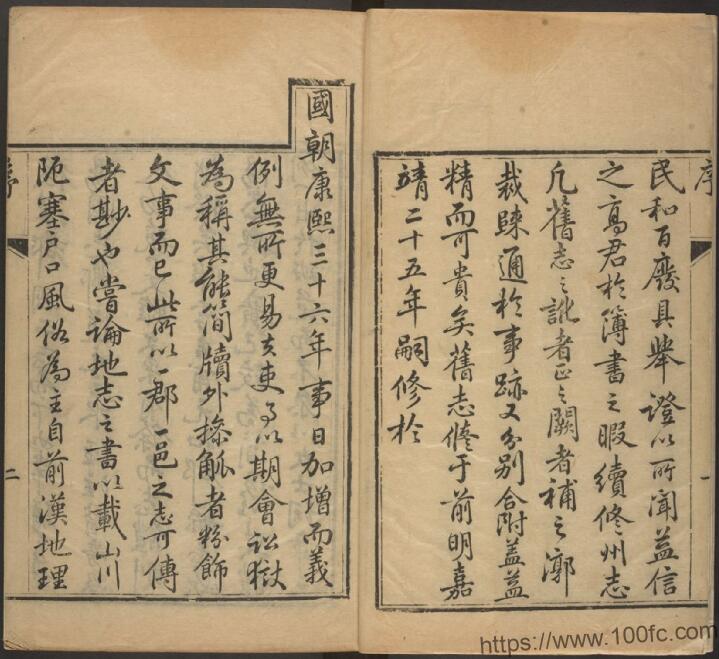 序
民和百廢具舉證以所聞益信
之高君於簿書之暇續修州志
凡舊志之訛者正之闕者補之鄭
裁疎通於事跡又分別合附蓋益
精而可貴矣舊志修于前明嘉
靖二十五年嗣修於
一
國朝康熙三十六年事日加增而義
例無所更易夫吏多以期會訟獄
為稱其能簡牘外操觚者粉飾
文事而已此所以一郡一邑之志可傳
者尠也嘗論地志之書以載山川
阨塞戶口風俗為主自前漢地理
序
二
https://www.100fc.com